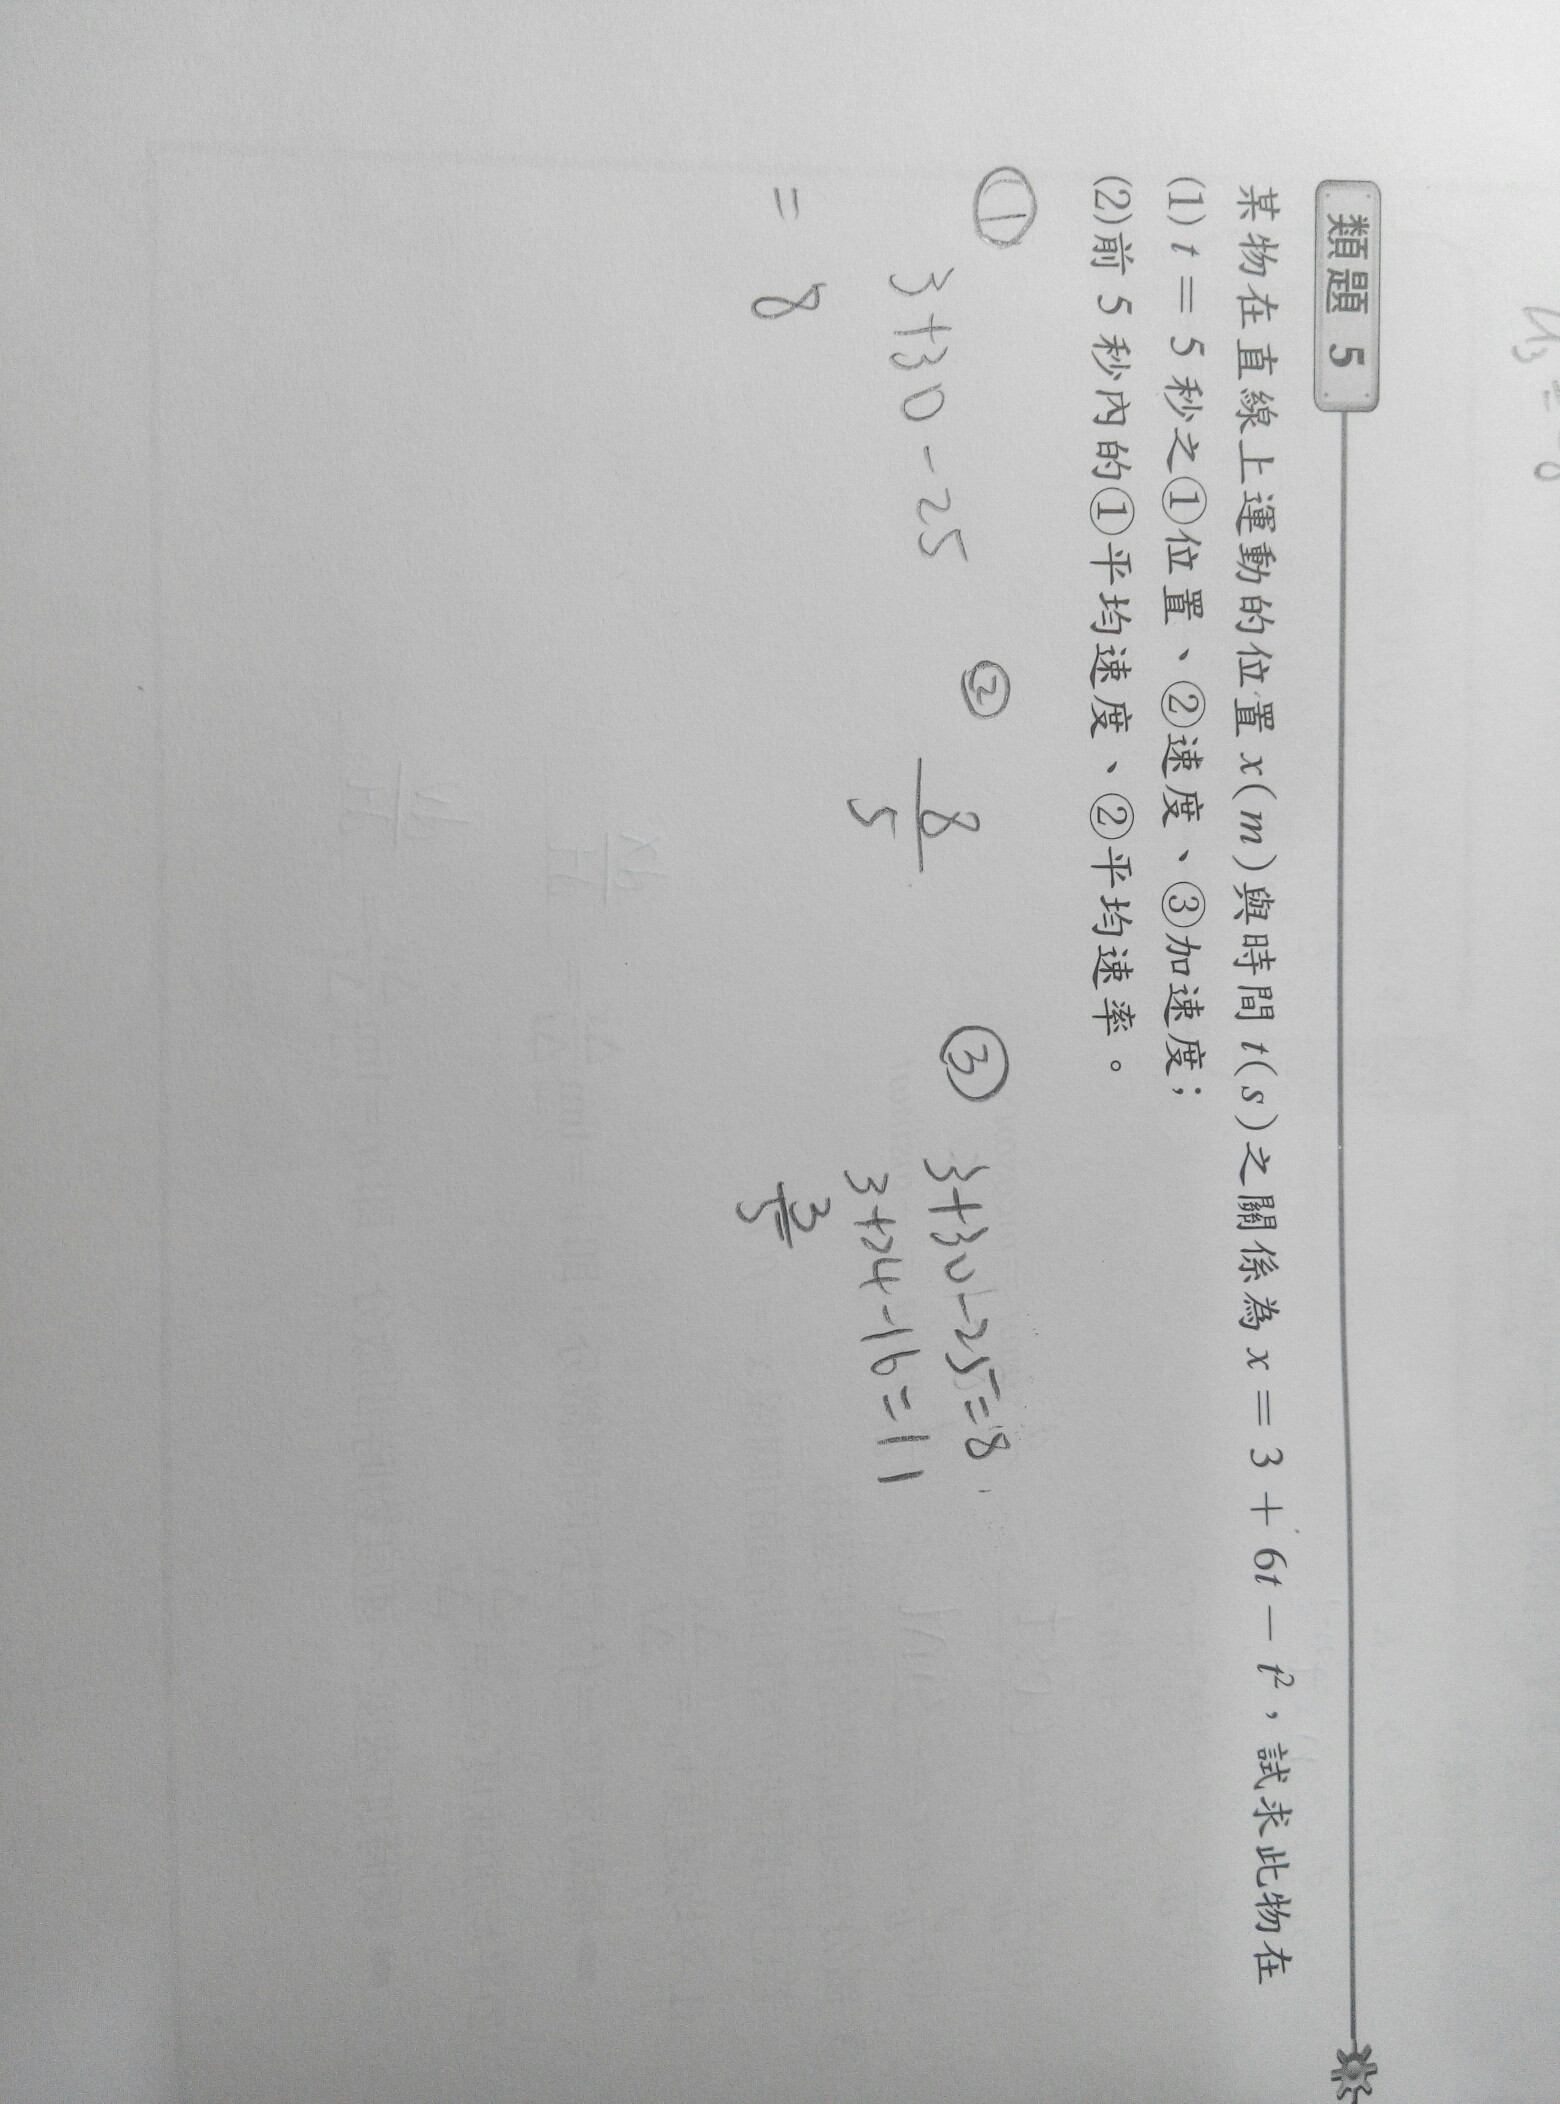 類題 5
某物在直線上運動的位置 x(m)與時間 t(s)之關係為 x = 3 + 6t − t²，試求此物在
(1) t = 5 秒之①位置、②速度、③加速度；
(2)前 5 秒內的①平均速度、②平均速率。
①
3+30-25
= 8
②
8
5
③
3+30-25=8
3+24-16=11
3
5